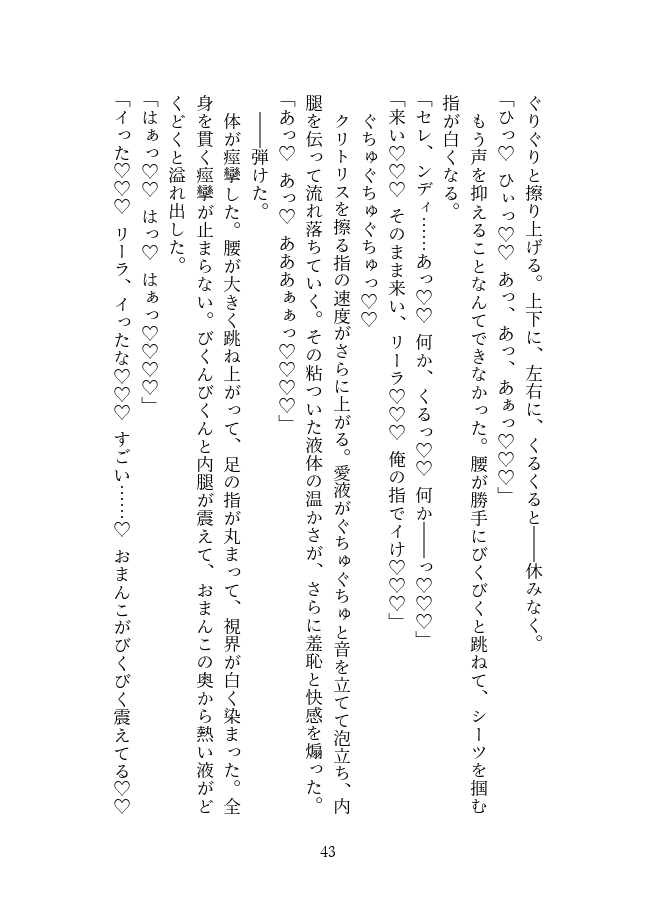 ぐりぐりと擦り上げる。上下に、左右に、くるくると――休みなく。
「ひっ♡ ひぃっ♡♡ あっ、あっ、あぁっ♡♡♡」
もう声を抑えることなんてできなかった。腰が勝手にびくびくと跳ねて、シーツを掴む
指が白くなる。
「セレ、ンディ……あっ♡♡ 何か、くるっ♡♡ 何か――っ♡♡♡」
「来い♡♡♡ そのまま来い、リーラ♡♡♡ 俺の指でイけ♡♡♡」
ぐちゅぐちゅぐちゅっ♡♡
クリトリスを擦る指の速度がさらに上がる。愛液がぐちゅぐちゅと音を立てて泡立ち、内
腿を伝って流れ落ちていく。その粘ついた液体の温かさが、さらに羞恥と快感を煽った。
「あっ♡ あっ♡ あああぁぁっ♡♡♡♡」
――弾けた。
体が痙攣した。腰が大きく跳ね上がって、足の指が丸まって、視界が白く染まった。全
身を貫く痙攣が止まらない。びくんびくんと内腿が震えて、おまんこの奥から熱い液がど
くどくと溢れ出した。
「はぁっ♡♡ はっ♡ はぁっ♡♡♡♡」
「イった♡♡♡ リーラ、イったな♡♡♡ すごい……♡ おまんこがびくびく震えてる♡♡
43